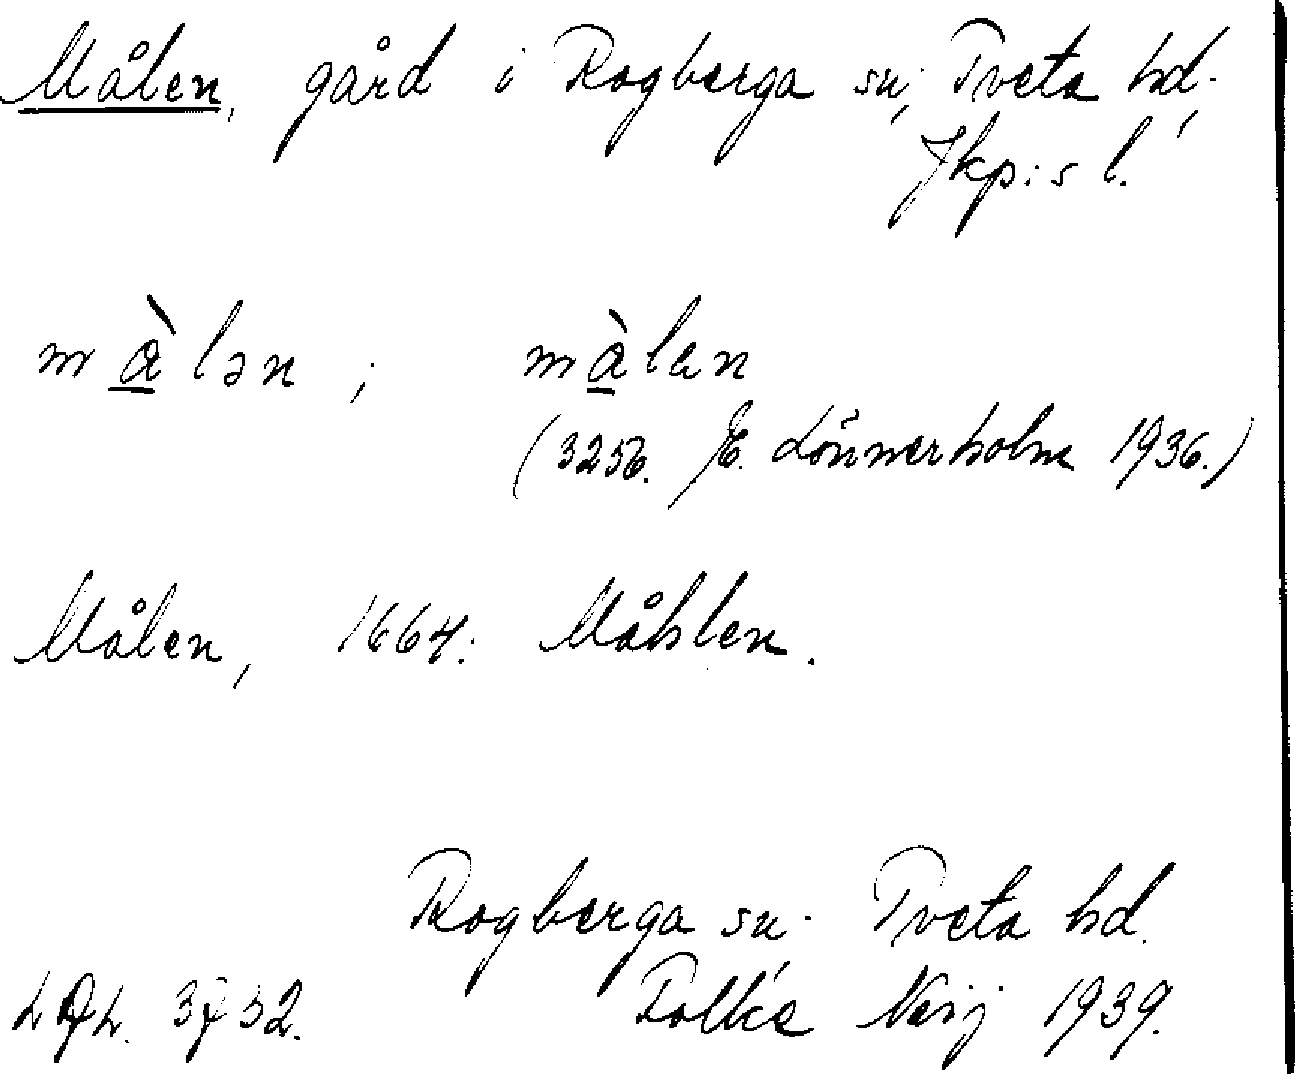 Målen, gård i Rogberga sn, Tveta hd,
Jkp:s l.
màlən ; màlen
(3256. E. Lönnerholm 1936.)
Målen, 1664: Måhlen.
Rogberga sn. Tveta hd.
Folke Neij 1939.